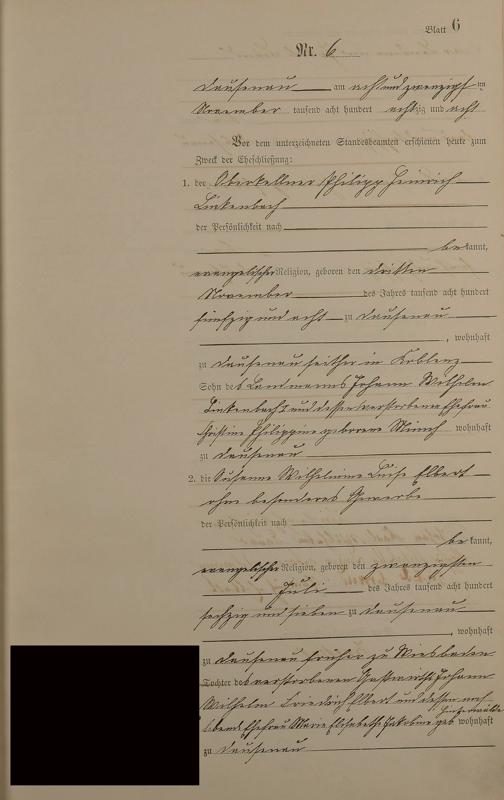 Blatt 6
Nr. 6
Dausenau am achtundzwanzigsten
November tausend acht hundert achtzig und acht
Vor dem unterzeichneten Standesbeamten erschienen heute zum
Zweck der Eheschließung:
1. der Oberkellner Philipp Heinrich
Linkenbach
der Persönlichkeit nach
bekannt,
evangelischer Religion, geboren den dritten
November des Jahres tausend acht hundert
fünfzig und acht zu Dausenau
, wohnhaft
zu Dausenau seither in Koblenz
Sohn des Landmanns Johann Wilhelm
Linkenbach und dessen verstorbener Ehefrau
Christine Philippine geborene Münch wohnhaft
zu Dausenau
2. die Susanne Wilhelmine Luise Elbert
ohne besonderes Gewerbe
der Persönlichkeit nach
bekannt,
evangelischer Religion, geboren den zwanzigsten
Juli des Jahres tausend acht hundert
sechzig und sieben zu Dausenau
, wohnhaft
zu Dausenau früher zu Wiesbaden
Tochter des verstorbenen Gastwirths Johann
Wilhelm Friedrich Elbert und dessen noch
lebende Ehefrau Marie Elisabethe Jakobine geb wohnhaft
zu Dausenau